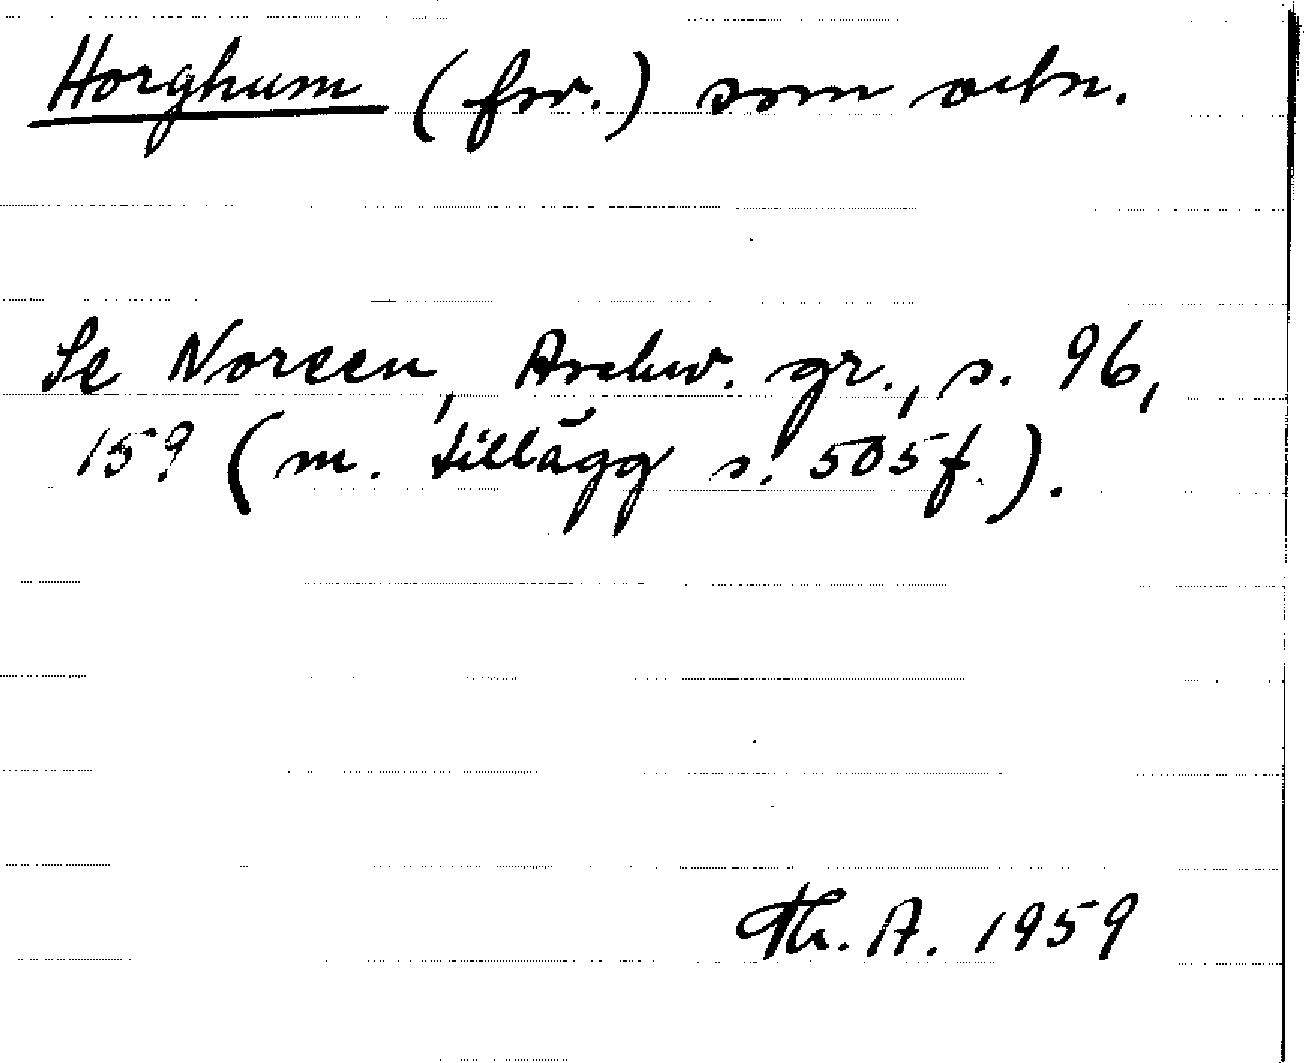 Horghum (fsv.) som ortn.
Se Noreen, Aschw. gr., s. 96,
159 (m. tillägg s. 505 f.).
Th. A. 1959